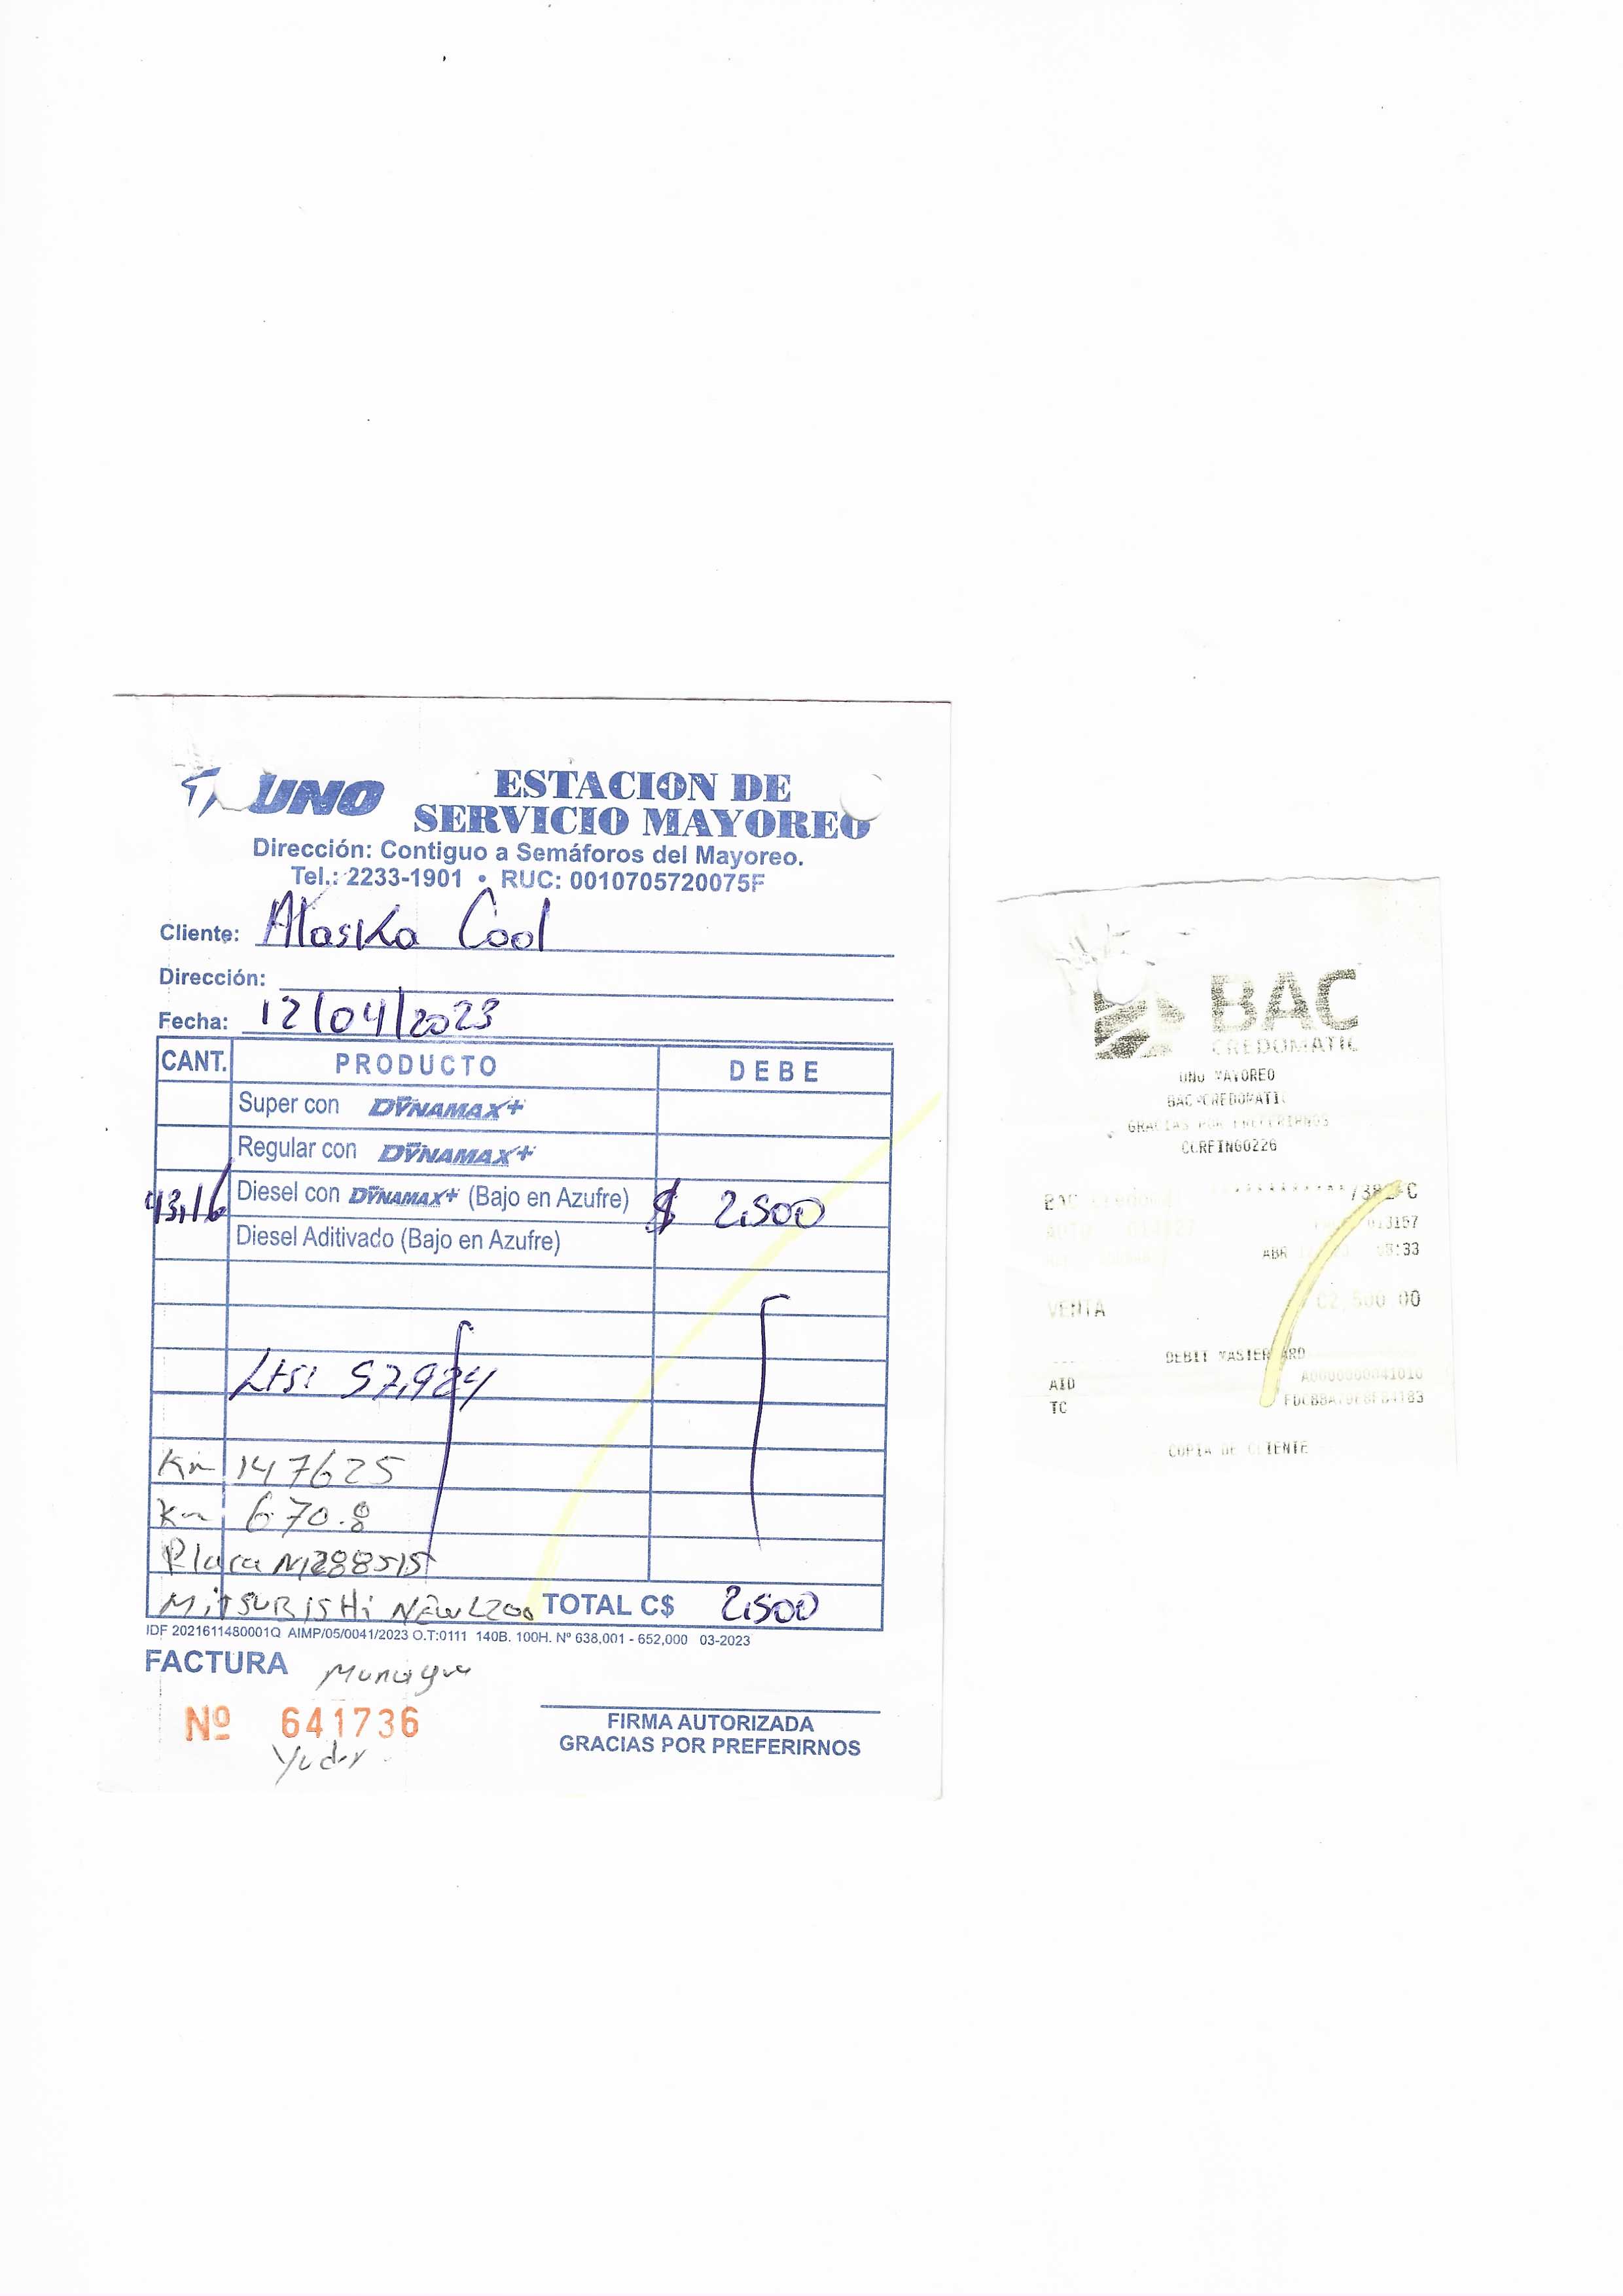 UNO
ESTACION DE
SERVICIO MAYOREO
Dirección: Contiguo a Semáforos del Mayoreo.
Tel.: 2233-1901 • RUC: 0010705720075F
Cliente: Alaska Cool
Dirección:
Fecha: 12/04/2023
CANT. PRODUCTO DEBE
Super con DYNAMAX+
Regular con DYNAMAX+
43,16 Diesel con DYNAMAX+ (Bajo en Azufre) $ 2,500
Diesel Aditivado (Bajo en Azufre)
Lts: 57,924
Km 147625
Km 670.8
Placa M288515
MITSUBISHI NEW L200 TOTAL C$ 2,500
IDF 2021611480001Q AIMP/05/0041/2023 O.T:0111 140B. 100H. Nº 638,001 - 652,000 03-2023
FACTURA Managua
Nº 641736
FIRMA AUTORIZADA
GRACIAS POR PREFERIRNOS
BAC
CREDOMATIC
UNO MAYOREO
BAC-CREDOMATIC
GRACIAS POR PREFERIRNOS
CCRFING0226
BAC
ABR :33
VENTA 00
DEBIT MASTERCARD
AID A0000000041010
TC
COPIA DE CLIENTE